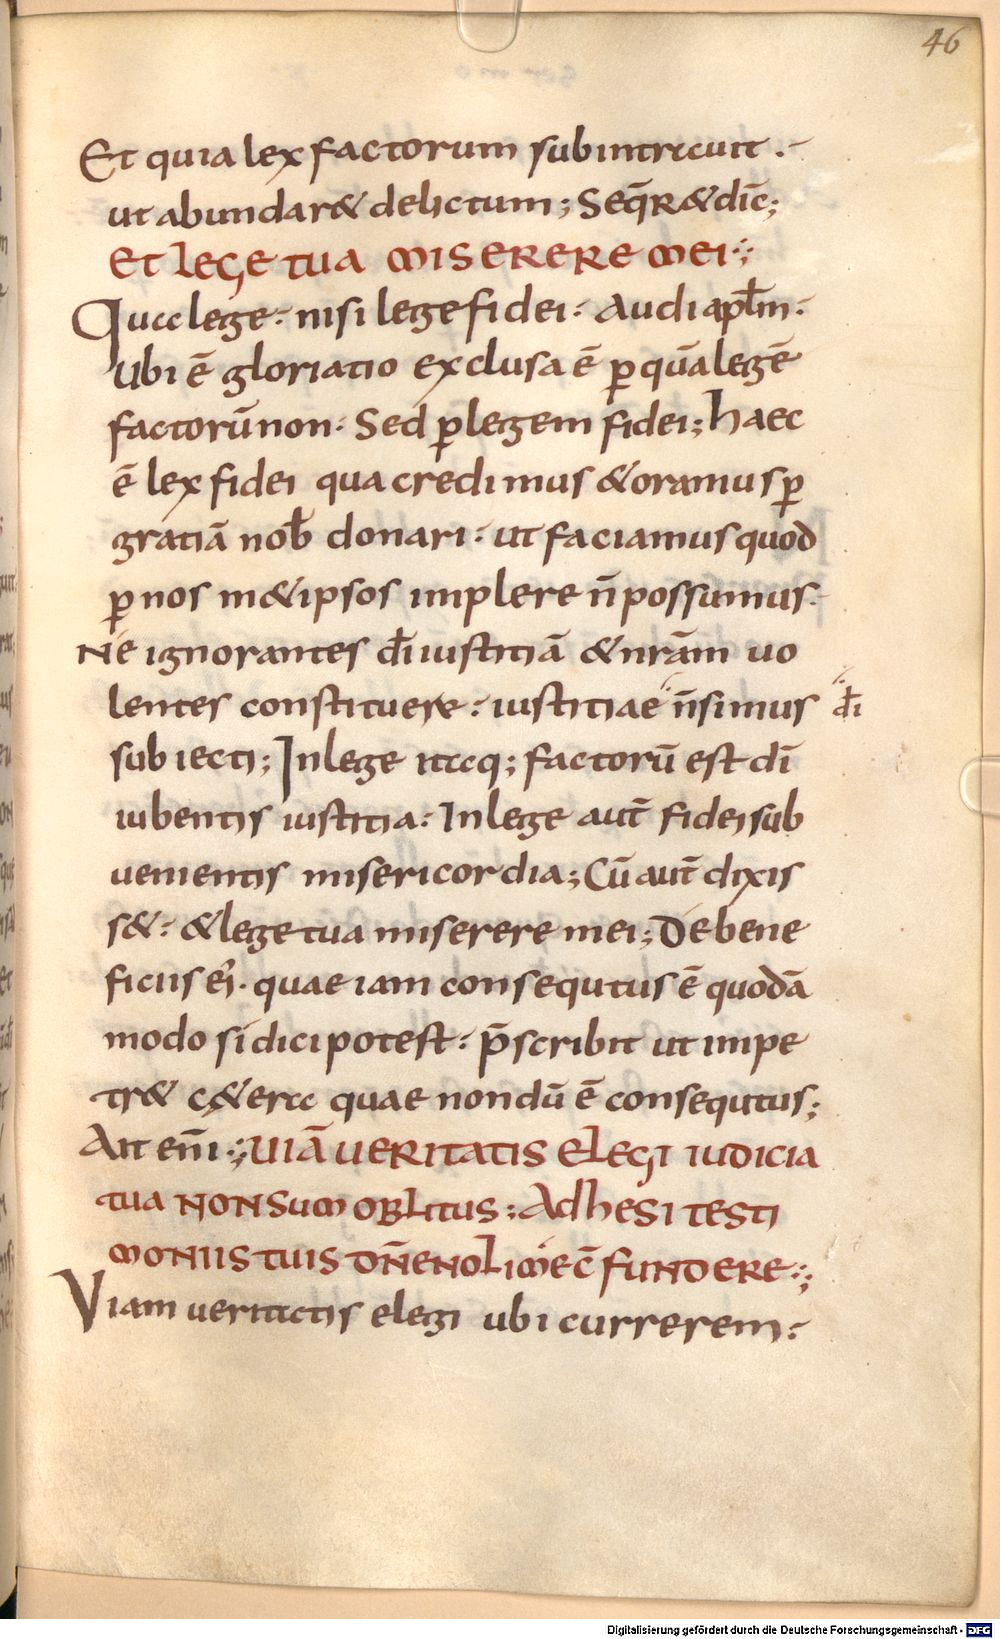 46
Et quia lex factorum subintrauit.
ut abundar& delictum; Seq̄R & dic̄;
Et lege tua miserere mei:;
Qua lege: nisi lege fidei: Audi apl̄m:
Ubi ē gloriatio exclusa ē ꝑ quā legē
factorū non: Sed ꝑ legem fidei; haec
ē lex fidei qua credimus & oramus ꝑ
gratiā nob̄ donari: ut faciamus quod
ꝑ nos m& ipsos implere n̄ possumus.
Ne ignorantes d̄i iustitiā & nr̄am uo
lentes constituere: iustitiae n̄ simus d̄i
subiecti; In lege itaq; factorū est dī
iubentis iustitia: In lege aut̄ fidei sub
uenientis misericordia; Cū aut̄ dixis
s&: & lege tua miserere mei; De bene
ficiis ei. quae iam consequutus ē quodā
modo si dici potest: p̄scribit ut impe
tr& c&era quae nondū ē consequutus;
Ait eni͞:; uiā ueritatis elegi iudicia
tua non sum oblitus: Adhesi testi
moniis tuis dn̄e noli me c̄fundere:;
Viam ueritatis elegi ubi currerem:
Digitalisierung gefördert durch die Deutsche Forschungsgemeinschaft - DFG